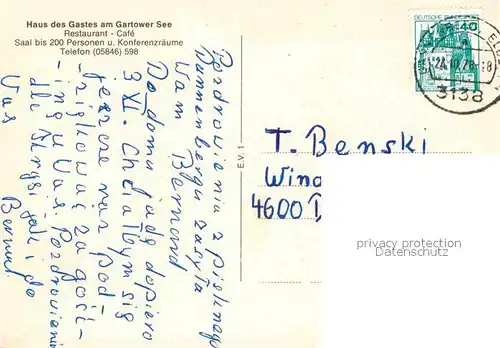 Haus des Gastes am Gartower See
Restaurant - Café
Saal bis 200 Personen u. Konferenzräume
Telefon (05846) 598
Pozdrowienia z pięknego
Dannenbergu zasyła
Wam Bernard
Do domu jadę dopiero
3 XI. Chciałbym się
jeszcze raz pod-
ziękować za gość-
inę u Was. Pozdrowienia
dla Krysi jak i do
Was
E.V. 1
DEUTSCHE BUNDESPOST
40
3138
T. Benski
4600
privacy protection
Datenschutz